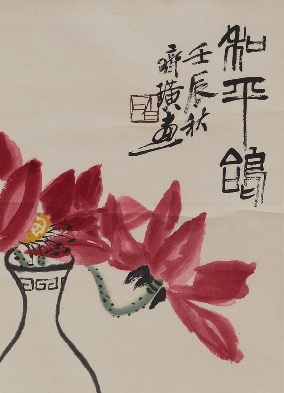 和平鴿
壬辰秋
齊璜畫